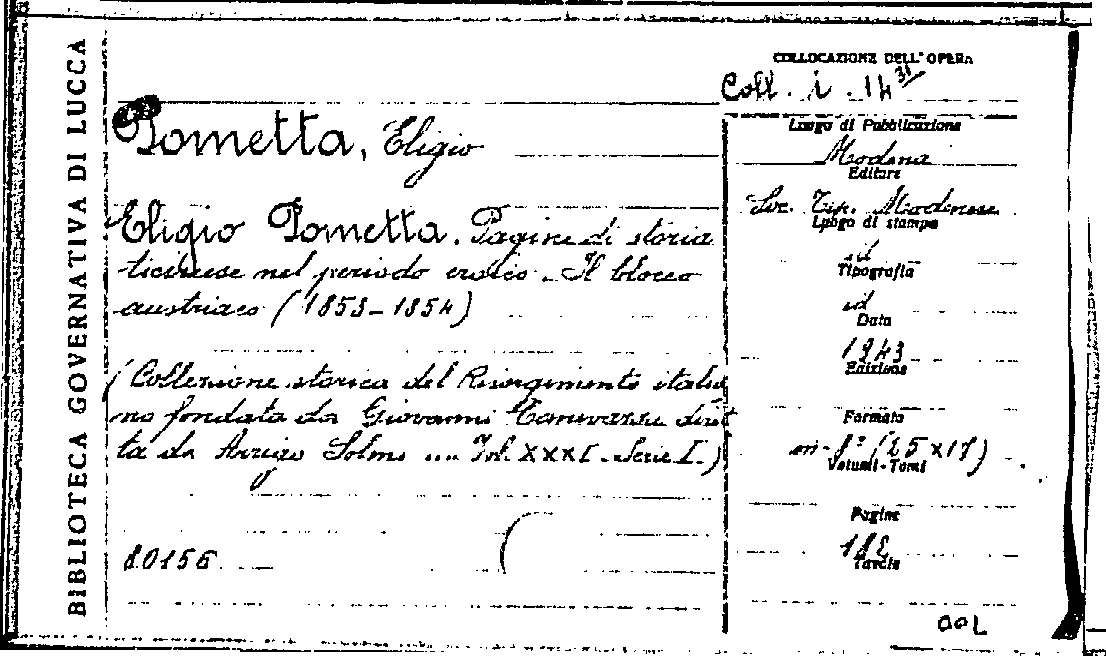 BIBLIOTECA GOVERNATIVA DI LUCCA
COLLOCAZIONE DELL'OPERA
Coll. i. 14 31
Pometta, Eligio
Eligio Pometta. Pagine di storia
ticinese nel periodo eroico. Il blocco
austriaco (1853-1854)
(Collezione storica del Risorgimento italia
no fondata da Giovanni diret
ta da Arrigo Solmi Vol. XXXI - Serie I.)
80156
Luogo di Pubblicazione
Modena
Editore
Soc. Tip. Modenese
Luogo di stampa
id
Tipografia
id
Data
1943
Edizione
Formato
in-8° (25x17)
Volumi-Tomi
Pagine
182
Tavole